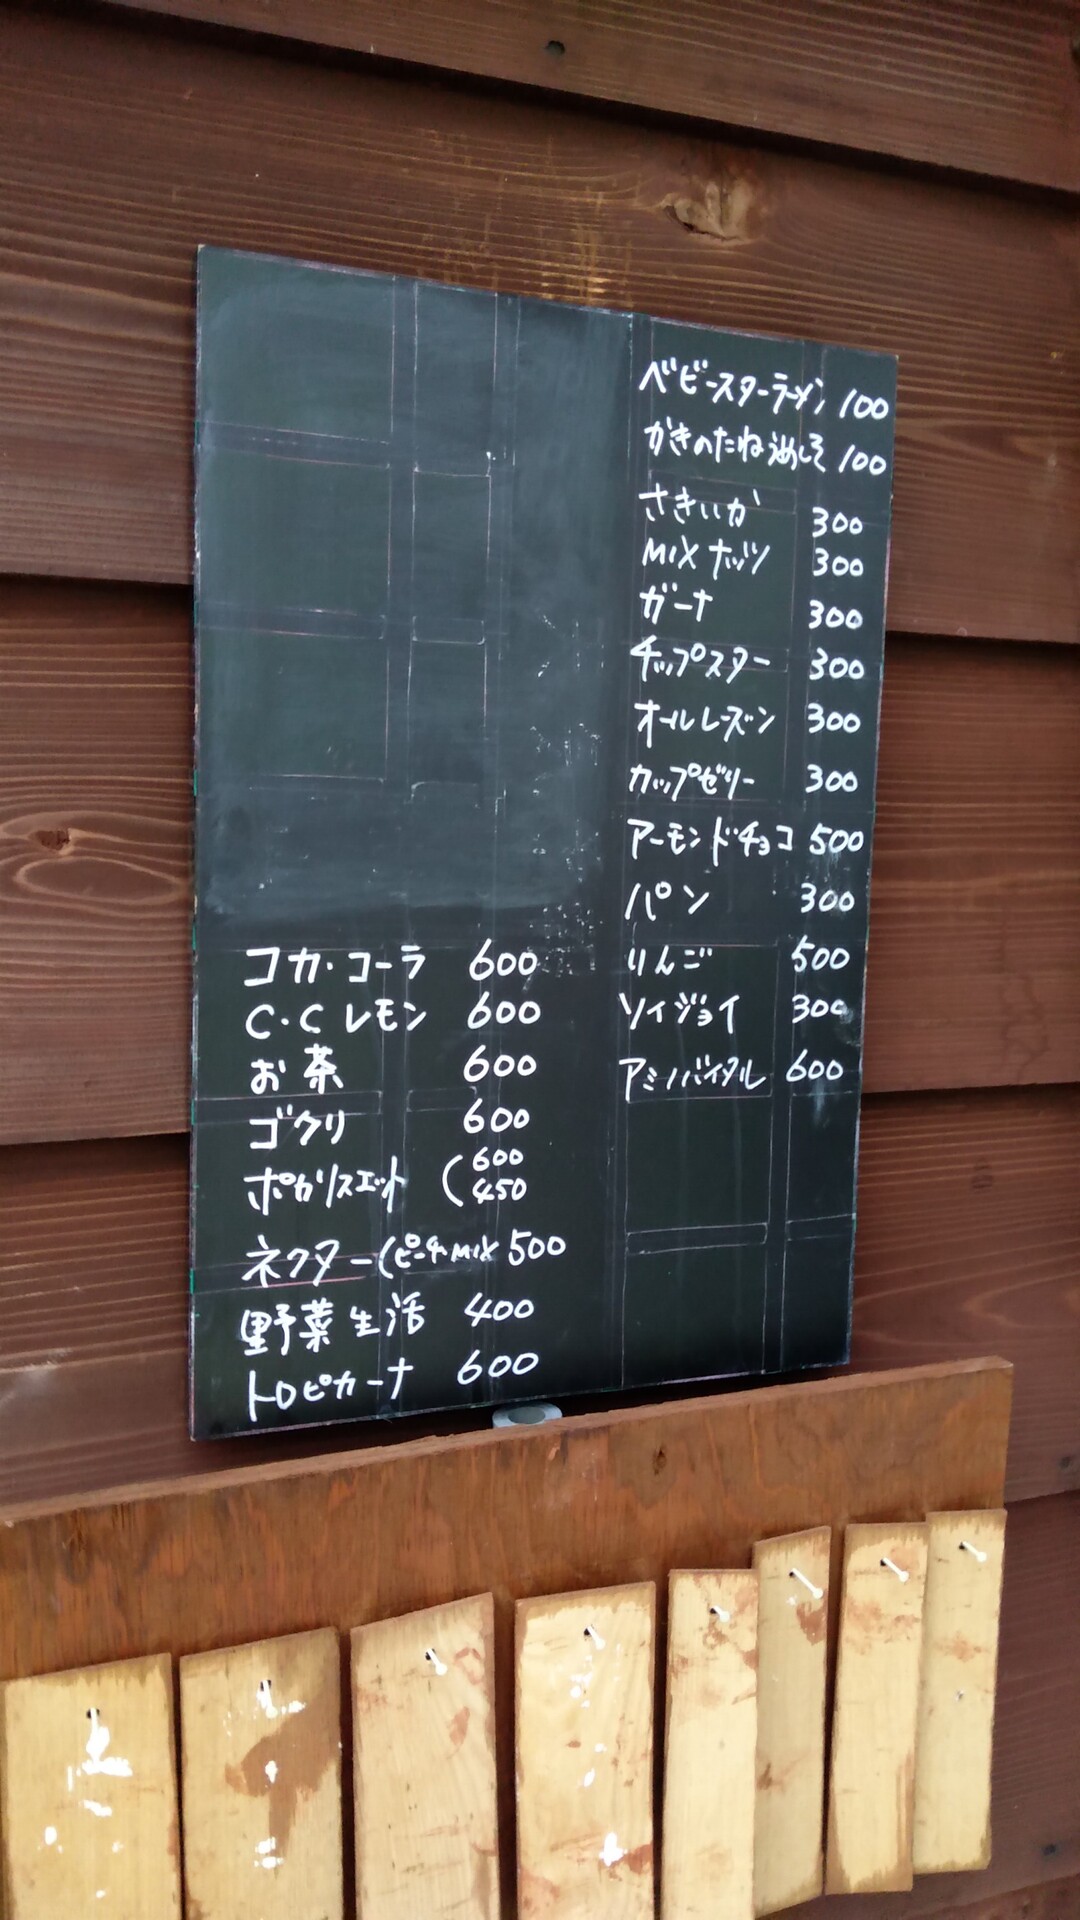 ベビースターラーメン 100
かきのたね梅しそ 100
さきいか 300
MIXナッツ 300
ガーナ 300
チップスター 300
オールレーズン 300
カップゼリー 300
アーモンドチョコ 500
パン 300
りんご 500
ソイジョイ 300
アミノバイタル 600
コカ・コーラ 600
C.Cレモン 600
お茶 600
ゴクリ 600
ポカリスエット (600
450
ネクター(ピーチ・MIX 500
野菜生活 400
トロピカーナ 600